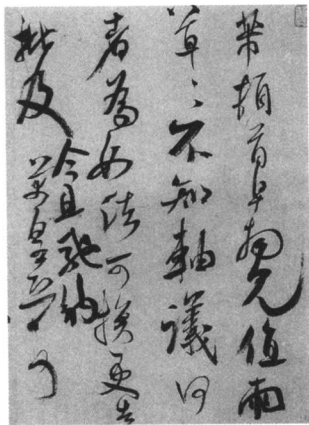 芾頓首早拜見值雨
草〻不知軸議何
者為如法可換更告
批及
今且馳納
芾皇恐